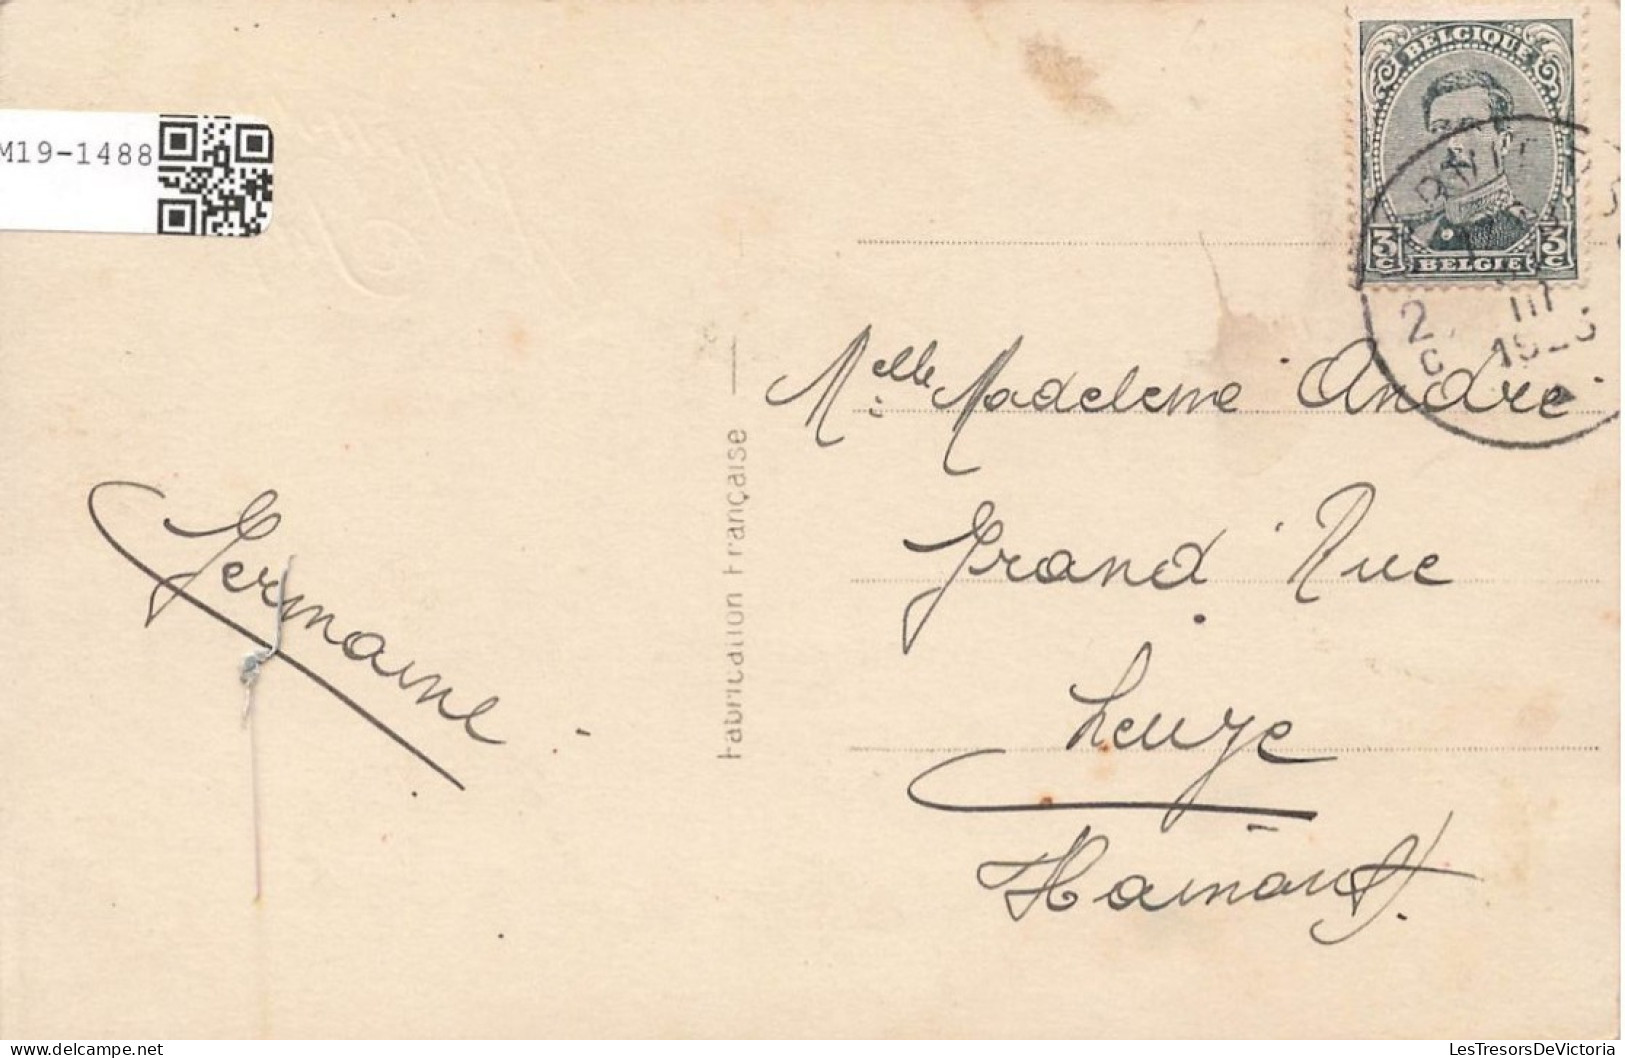 M19-1488
BELGIQUE
3c 3c
BELGIE
2 III
1923
Melle Madeleine André
Grand'Rue
Leuze
Hainaut.
Germaine
Fabrication Française
LesTresorsDeVictoria
https://www.delcampe.net